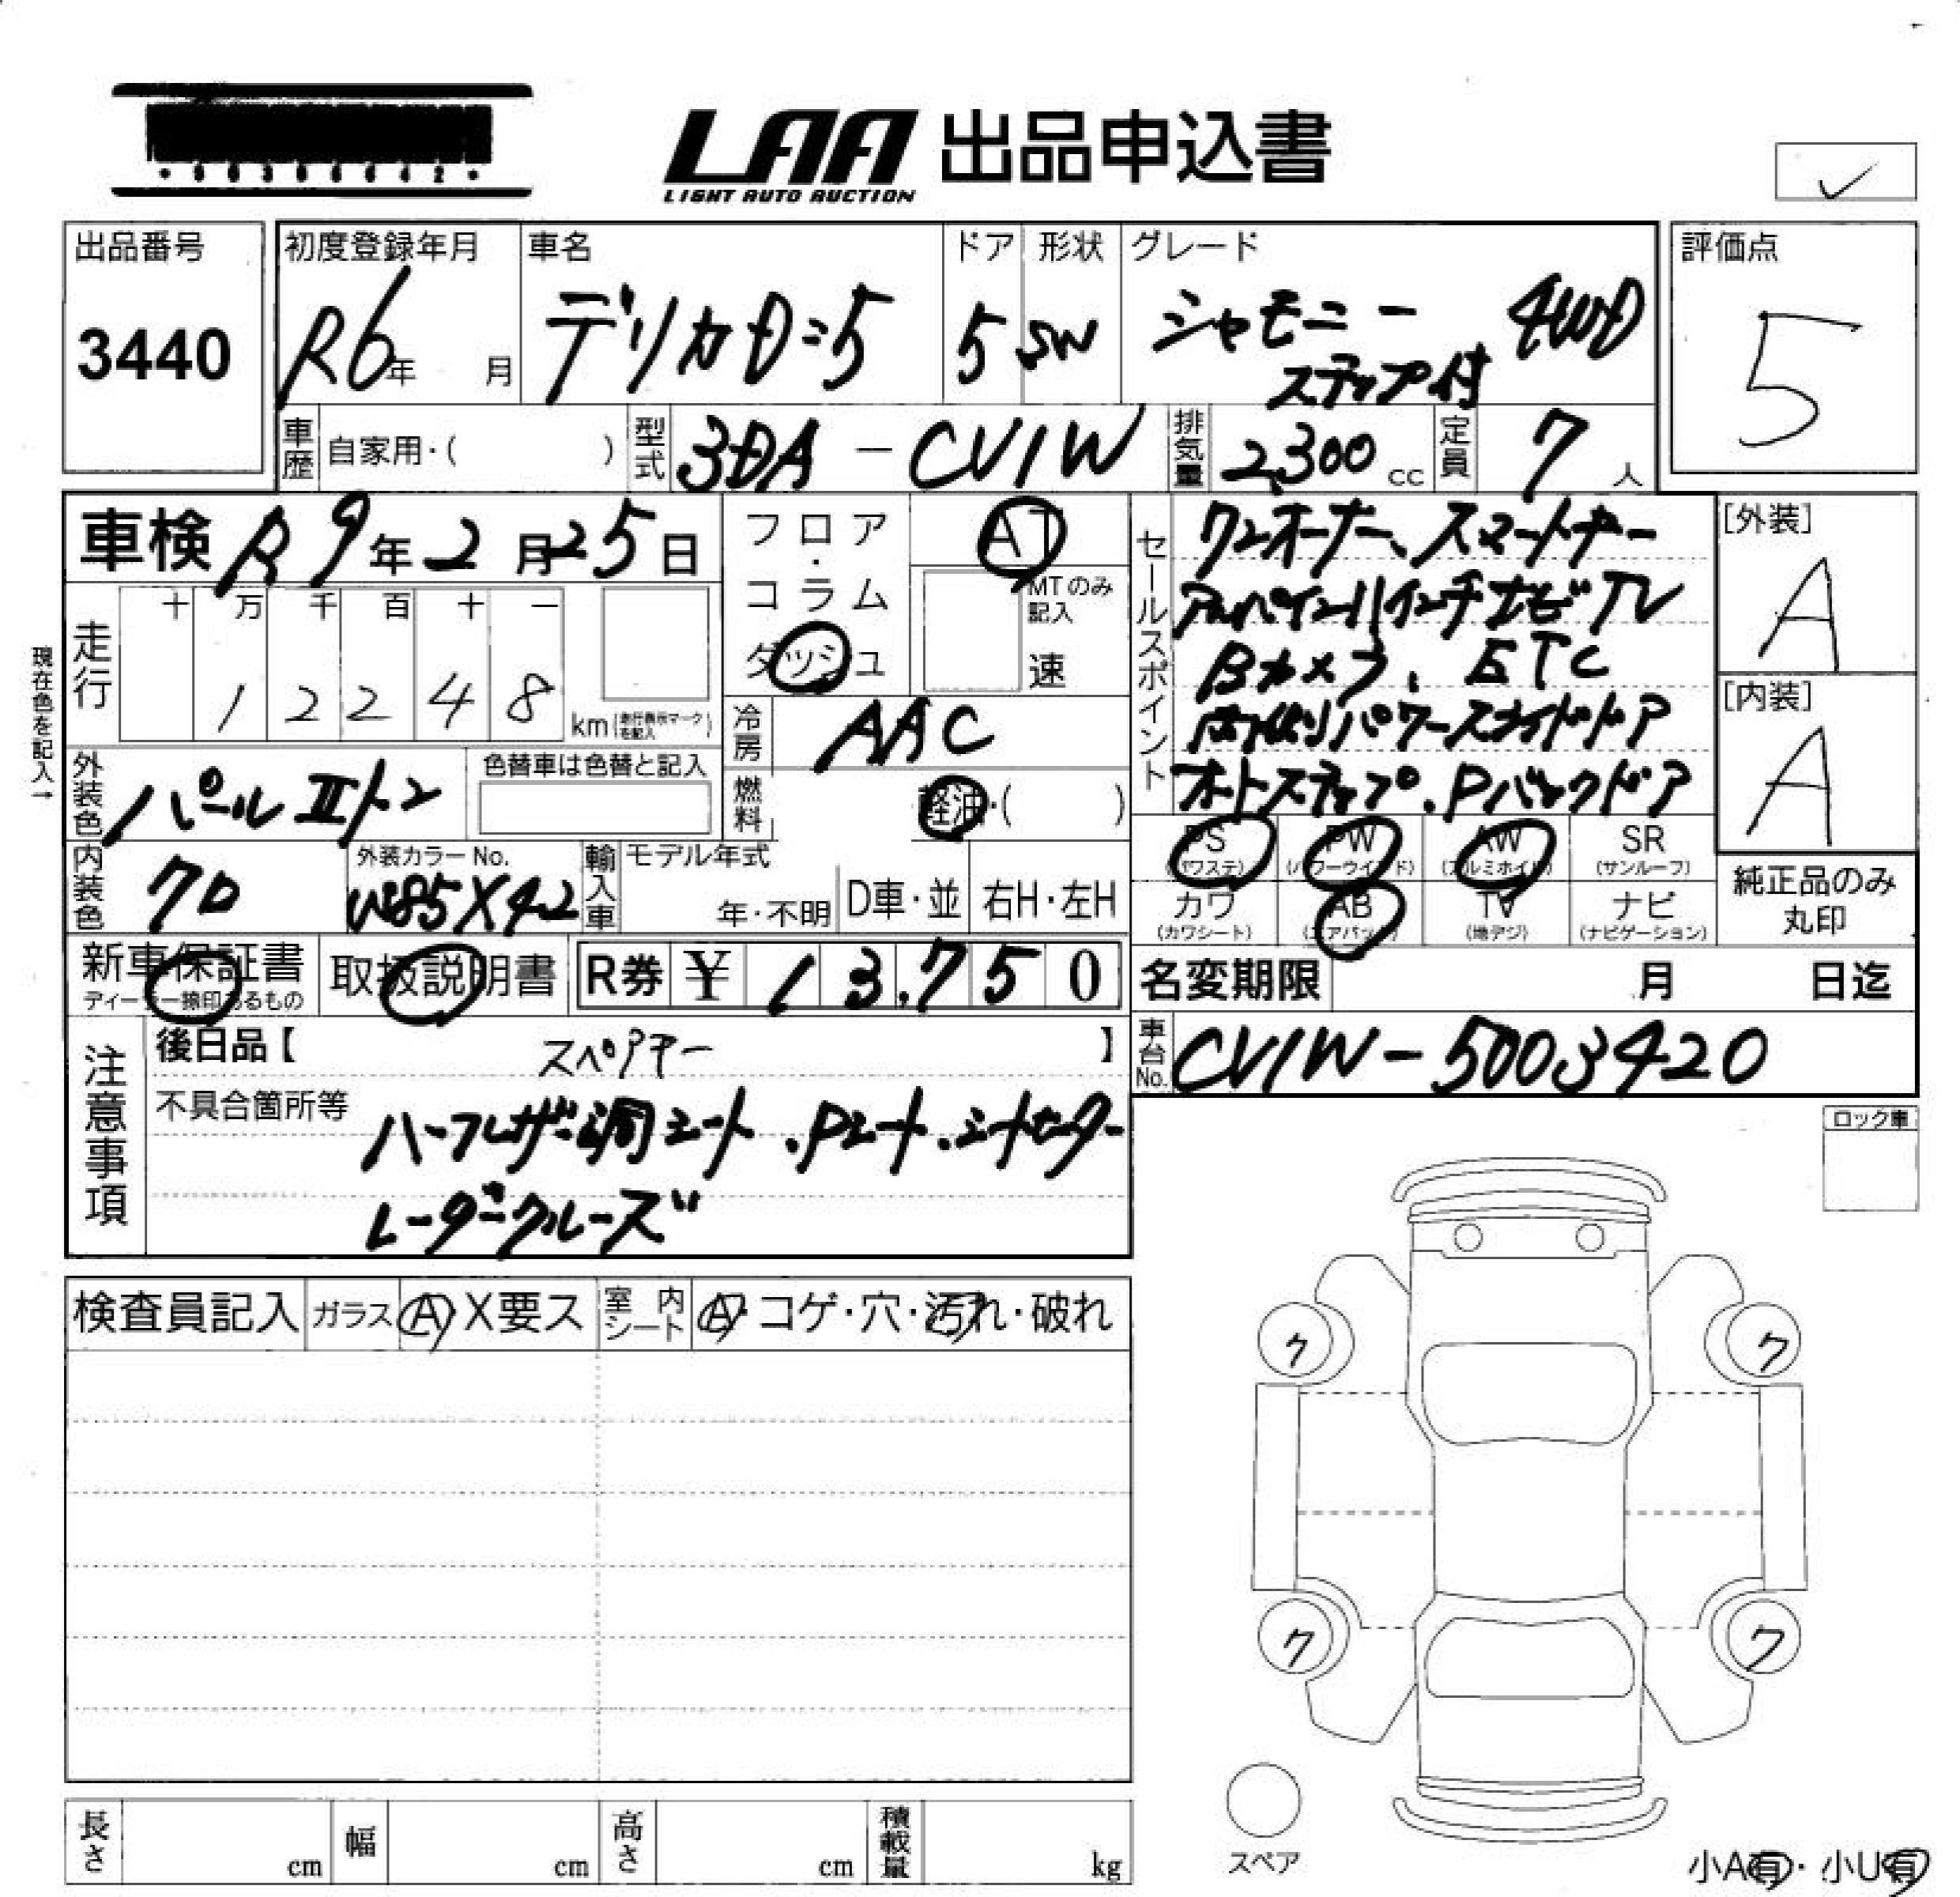 LAA 出品申込書
LIGHT AUTO AUCTION
出品番号 3440
初度登録年月 R6年 月
車名 デリカD:5
ドア 5
形状 SW
グレード シャモニー 4WD
ステップ付
評価点 5
車歴 自家用・( )
型式 3DA-CV1W
排気量 2,300 cc
定員 7 人
車検 R9年2月25日
フロア・コラム ダッシュ
AT
MTのみ記入 速
セールスポイント
ワンオーナー、スマートキー
アルパイン11インチナビTV
Bカメラ、ETC
両側パワースライドドア
オートステップ、Pバックドア
[外装] A
[内装] A
現在色を記入→
走行 十 万 千 百 十 一
12248 km(走行表示マークを記入)
冷房 AAC
外装色 パールⅡトン
色替車は色替と記入
燃料 軽油・( )
PS (パワステ) PW (パワーウインド) AW (アルミホイル) SR (サンルーフ)
カワ (カワシート) AB (エアバッグ) TV (地デジ) ナビ (ナビゲーション)
純正品のみ丸印
内装色 クロ
外装カラーNo. W85X42
輸入車 モデル年式 年・不明 D車・並 右H・左H
新車保証書
ディーラー捺印あるもの
取扱説明書
R券 ¥ 13,750
名変期限 月 日迄
車台No. CV1W-5003420
注意事項
後日品【 スペアキー 】
不具合箇所等
ハーフレザー調シート、Pシート、シートヒーター
レーダークルーズ
ロック車
検査員記入 ガラス A・X要ス 室内シート A・コゲ・穴・汚れ・破れ
ク ク
ク ク
スペア
長さ cm 幅 cm 高さ cm 積載量 kg
小A有・小U有